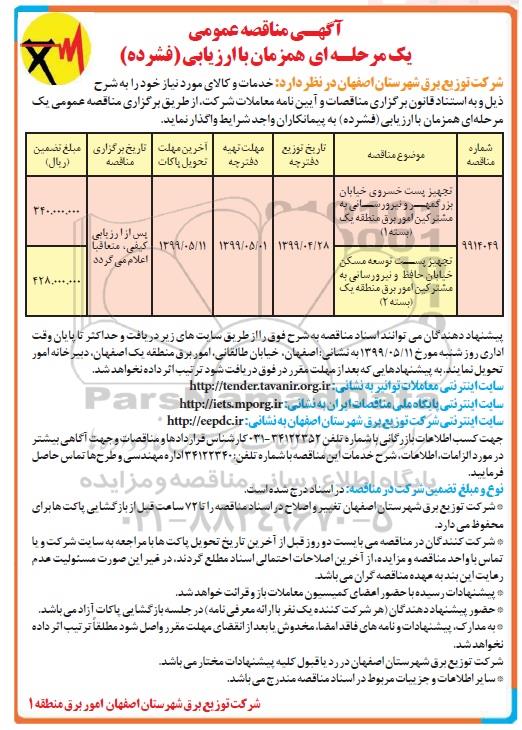 آگهی مناقصه عمومی
یک مرحله ای همزمان با ارزیابی (فشرده)
شرکت توزیع برق شهرستان اصفهان در نظر دارد: خدمات و کالای مورد نیاز خود را به شرح
ذیل و به استناد قانون برگزاری مناقصات و آیین نامه معاملات شرکت، از طریق برگزاری مناقصه عمومی یک
مرحله‌ای همزمان با ارزیابی (فشرده) به پیمانکاران واجد شرایط واگذار نماید.
شماره مناقصه
موضوع مناقصه
تاریخ توزیع دفترچه
مهلت تهیه دفترچه
آخرین مهلت تحویل پاکات
تاریخ برگزاری مناقصه
مبلغ تضمین (ریال)
۹۹۱۴۰۴۹
تجهیز پست خسروی خیابان
بزرگمهر و نیرورسانی به
مشترکین امور برق منطقه یک
(بسته ۱)
۱۳۹۹/۰۴/۲۸
۱۳۹۹/۰۵/۰۱
۱۳۹۹/۰۵/۱۱
پس از ارزیابی
کیفی، متعاقبا
اعلام می گردد
۳۴۰.۰۰۰.۰۰۰
تجهیز پست توسعه مسکن
خیابان حافظ و نیرورسانی به
مشترکین امور برق منطقه یک
(بسته ۲)
۴۲۸.۰۰۰.۰۰۰
پیشنهاد دهندگان می توانند اسناد مناقصه به شرح فوق را از طریق سایت های زیر دریافت و حداکثر تا پایان وقت
اداری روز شنبه مورخ ۱۳۹۹/۰۵/۱۱ به نشانی: اصفهان، خیابان طالقانی، امور برق منطقه یک اصفهان، دبیرخانه امور
تحویل نمایند. به پیشنهادهایی که بعد از مهلت مقرر در فوق دریافت شود ترتیب اثر داده نخواهد شد.
سایت اینترنتی معاملات توانیر به نشانی: http://tender.tavanir.org.ir
سایت اینترنتی پایگاه ملی مناقصات ایران به نشانی: http://iets.mporg.ir
سایت اینترنتی شرکت توزیع برق شهرستان اصفهان به نشانی: http://eepdc.ir
جهت کسب اطلاعات بازرگانی با شماره تلفن ۳۴۱۲۲۳۵۲-۰۳۱ کارشناس قراردادها و مناقصات و جهت آگاهی بیشتر
در مورد الزامات، اطلاعات، شرح خدمات این مناقصه با شماره تلفن: ۳۴۱۲۲۳۴۰ اداره مهندسی و طرح‌ها تماس حاصل
فرمایید.
نوع و مبلغ تضمین شرکت در مناقصه: در اسناد درج شده است.
* شرکت توزیع برق شهرستان اصفهان تغییر و اصلاح در اسناد مناقصه را تا ۷۲ ساعت قبل از بازگشایی پاکت ها برای
محفوظ می دارد.
* شرکت کنندگان در مناقصه می بایست دو روز قبل از آخرین تاریخ تحویل پاکت ها با مراجعه به سایت شرکت و یا
تماس با واحد مناقصه و مزایده، از آخرین اصلاحات احتمالی اسناد مطلع گردند، در غیر این صورت مسئولیت عدم
رعایت این بند به عهده مناقصه گران می باشد.
* پیشنهادات رسیده با حضور اعضای کمیسیون معاملات باز و قرائت خواهد شد.
* حضور پیشنهاد دهندگان (هر شرکت کننده یک نفر با ارائه معرفی نامه) در جلسه بازگشایی پاکات آزاد می باشد.
* به مدارک، پیشنهادات و نامه های فاقد امضا، مخدوش یا بعد از انقضای مهلت مقرر واصل شود مطلقاً ترتیب اثر داده
نخواهد شد.
شرکت توزیع برق شهرستان اصفهان در رد یا قبول کلیه پیشنهادات مختار می باشد.
* سایر اطلاعات و جزییات مربوط در اسناد مناقصه مندرج می باشد.
شرکت توزیع برق شهرستان اصفهان امور برق منطقه ۱
پایگاه اطلاع رسانی مناقصه و مزایده
۰۲۱-۸۸۳۴۹۶۷۰-۵